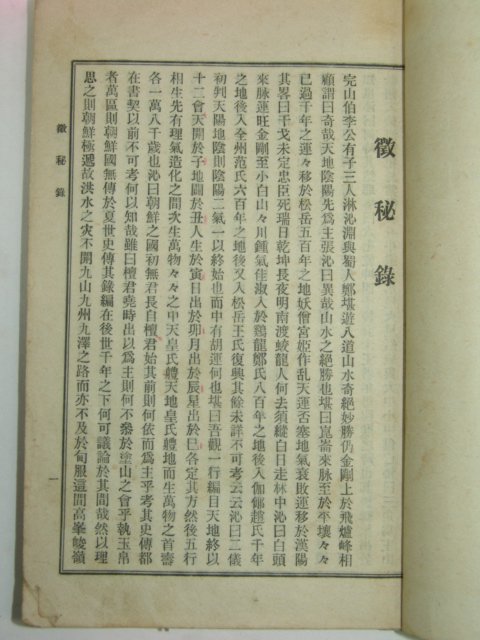 徵秘錄
完山伯李公有子三人淋沁淵與蜀人鄭堪遊八道山水奇絕妙勝仍金剛上於飛爐峰相
顧謂曰奇哉天地陰陽先爲主張沁曰異哉山水之絕勝也堪曰崑崙來脉至於平壤々々
已過千年之運々移於松岳五百年之地妖僧宮姬作乱天運否塞地氣衰敗運移於漢陽
其畧曰干戈未定忠臣死瑞日乾坤長夜明南渡蛟龍人何去須縱白日走林中沁曰白頭
來脉運旺金剛至小白山々川鍾氣佳淑入於鷄龍鄭氏八百年之地後入伽倻趙氏千年
之地後入全州范氏六百年之地後又入松岳王氏復興其餘未詳不可考云云沁曰二儀
初判天陽地陰則陰陽二氣一以終始也而中有胡運何也堪曰吾觀一行編目天地終以
十二會天開於子地闢於丑人生於寅日出於卯月出於辰星出於巳各定其方然後五行
相生先有理氣造化之間次生萬物々々之中天皇氏軆天地皇氏軆地而生萬物之首壽
各一萬八千歲也沁曰朝鮮之國初無君長自檀君始其前則何依而爲主乎考其史傳都
在書契以前不可考何以知哉雖曰檀君堯時出以爲主則何不叅於塗山之會乎執玉帛
者萬區則朝鮮國無傳於夏世史傳其錄編在後世千年之下何可議論於其間哉然以理
思之則朝鮮極遐故洪水之灾不開九山九州九澤之路而亦不及於甸服這間高峯峻嶺
徵秘錄
一